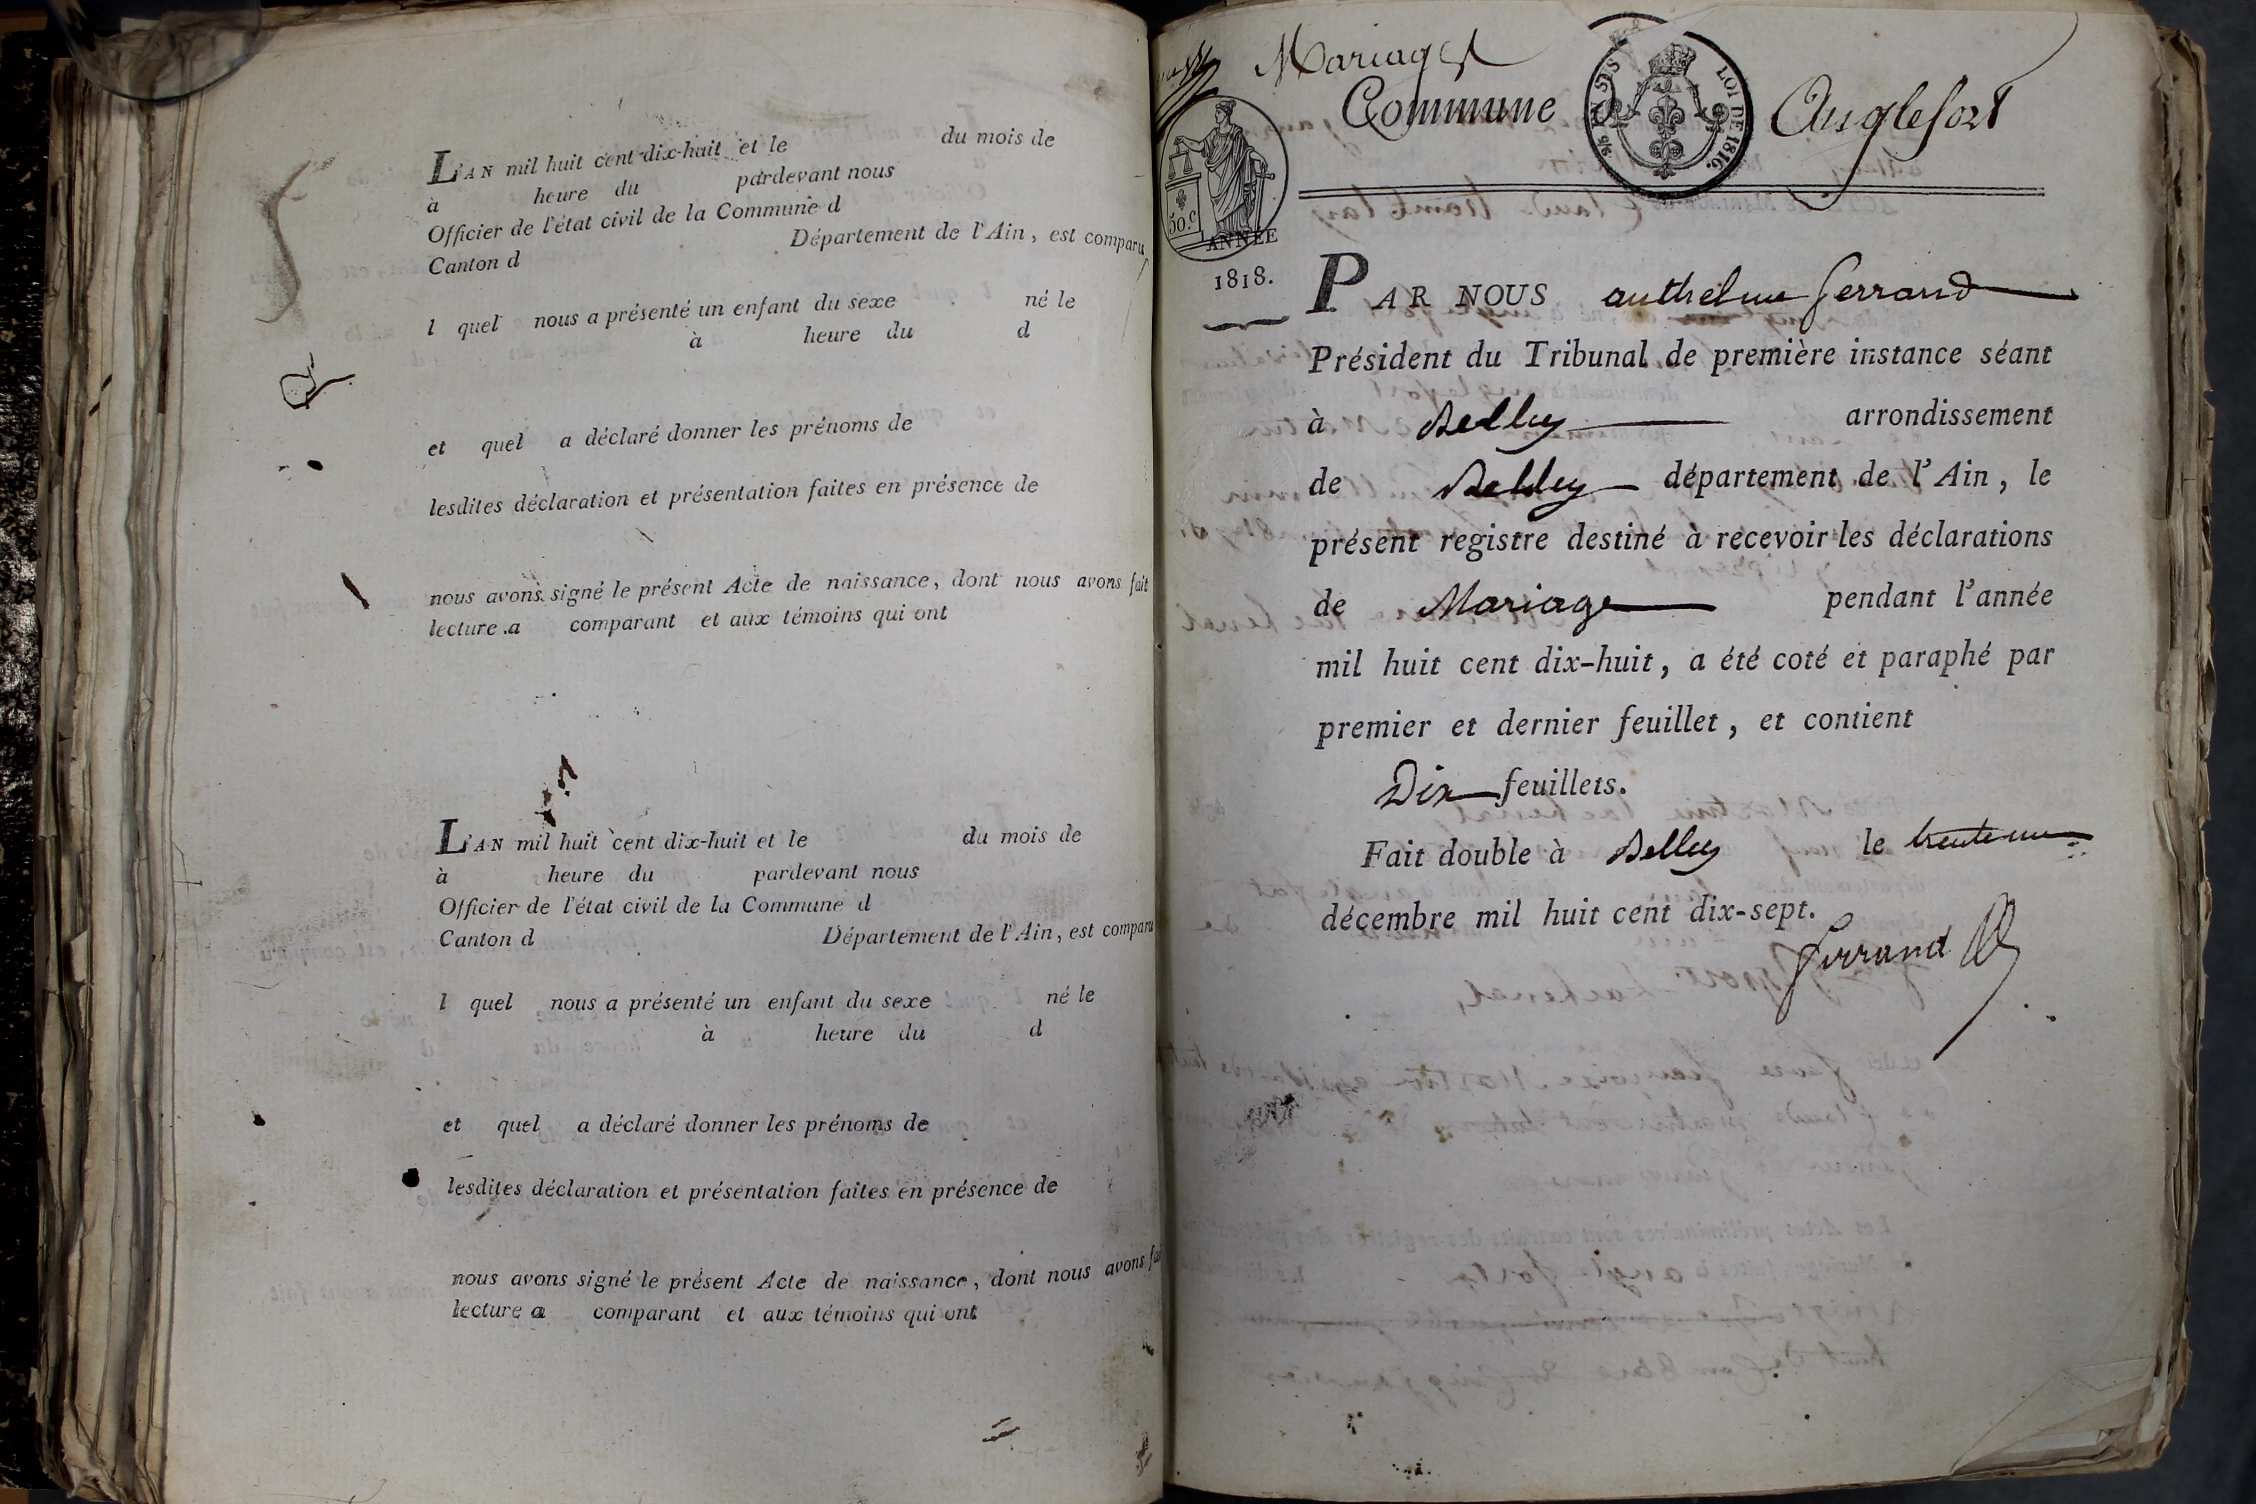 L'AN mil huit cent dix-huit et le du mois de
à heure du pardevant nous
Officier de l'état civil de la Commune d
Canton d Département de l'Ain, est comparu
l quel nous a présenté un enfant du sexe né le
à heure du d
et quel a déclaré donner les prénoms de
lesdites déclaration et présentation faites en présence de
nous avons signé le présent Acte de naissance, dont nous avons fait
lecture a comparant et aux témoins qui ont
L'AN mil huit cent dix-huit et le du mois de
à heure du pardevant nous
Officier de l'état civil de la Commune d
Canton d Département de l'Ain, est comparu
l quel nous a présenté un enfant du sexe né le
à heure du d
et quel a déclaré donner les prénoms de
lesdites déclaration et présentation faites en présence de
nous avons signé le présent Acte de naissance, dont nous avons fai
lecture a comparant et aux témoins qui ont
Mariages
Commune Anglefort
LOI DE 1816.
50.c
ANNÉE
1818.
PAR NOUS anthelme ferrand
Président du Tribunal de première instance séant
à Belley arrondissement
de Belley département de l'Ain, le
présent registre destiné à recevoir les déclarations
de Mariage pendant l'année
mil huit cent dix-huit, a été coté et paraphé par
premier et dernier feuillet, et contient
Dix feuillets.
Fait double à Belley le trente un
décembre mil huit cent dix-sept.
ferrand